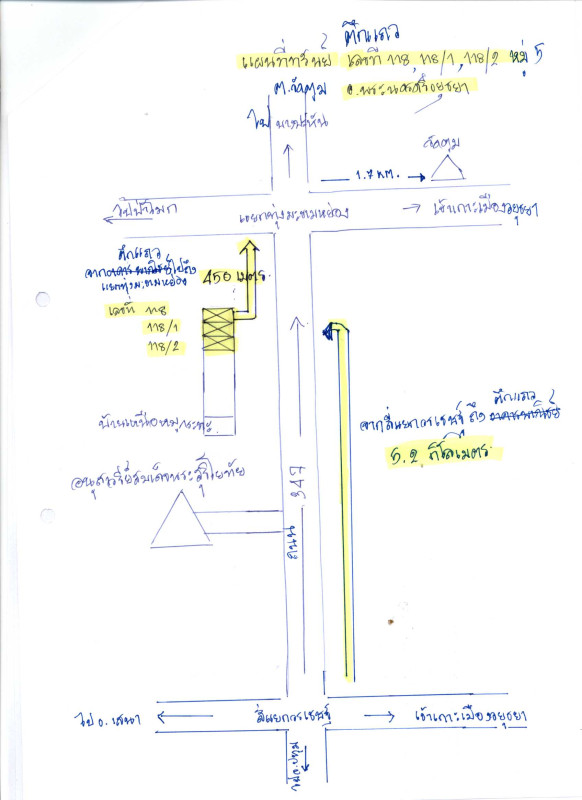 ตึกแถว
แผนที่ทรัพย์ เลขที่ 118, 118/1, 118/2 หมู่ 5
ต.วัดตูม อ.พระนครศรีอยุธยา
ไป บางปะหัน
วัดตูม
1.7 KM.
ไปป่าโมก
แยกทุ่งมะขามหย่อง
เข้าเกาะเมืองอยุธยา
ตึกแถว
ไปถึง
แยกทุ่งมะขามหย่อง
450 เมตร
เลขที่ 118
118/1
118/2
ตึกแถว
จากสี่แยกวรเชษฐ์ ถึง
5.2 กิโลเมตร
อนุสาวรีย์สมเด็จพระสุริโยทัย
ถนน 347
ไป อ.เสนา
สี่แยกวรเชษฐ์
เข้าเกาะเมืองอยุธยา